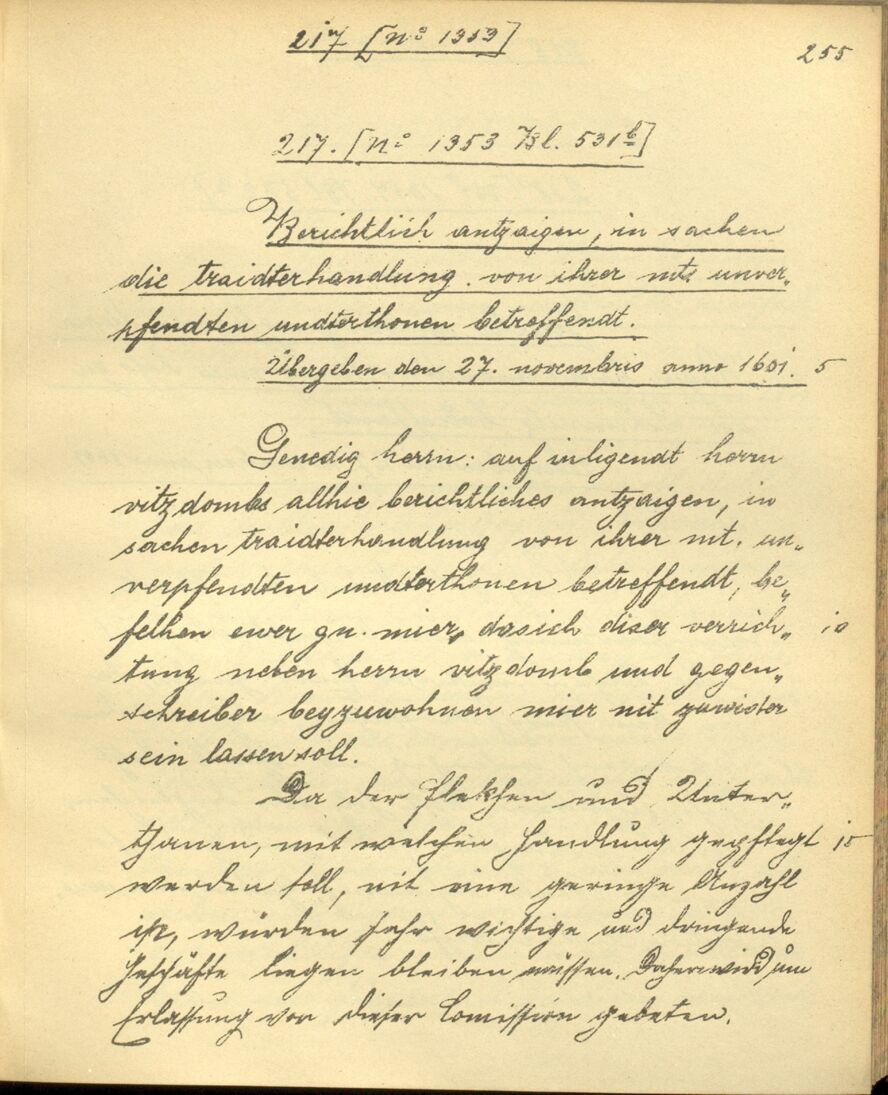 217 [No 1353]
255
217. [No 1353 Bl. 531b]
Berichtlich antzaigen, in sachen
die traidterhandlung von ihrer mt. unver„
pfendten undterthonen betreffendt.
Übergeben den 27. novembris anno 1601. 5
Genedig herrn: auf inligendt herrn
vitzdombs allhie berichtliches antzaigen, in
sachen traidterhandlung von ihrer mt. un„
verpfendten undterthonen betreffendt, be„
felhen ewer gn. mier, das ich diser verrich„ 10
tung neben herrn vitzdomb und gegen„
schreiber beyzuwohnen mier nit zuwider
sein lassen soll.
Da der Flekhen und Unter„
thanen, mit welchen Handlung gepflegt 15
werden soll, nit eine geringe Anzahl
ist, würden sehr wichtige und dringende
Geschäfte liegen bleiben müssen. Daher wird um
Erlassung von dieser Comission gebeten.